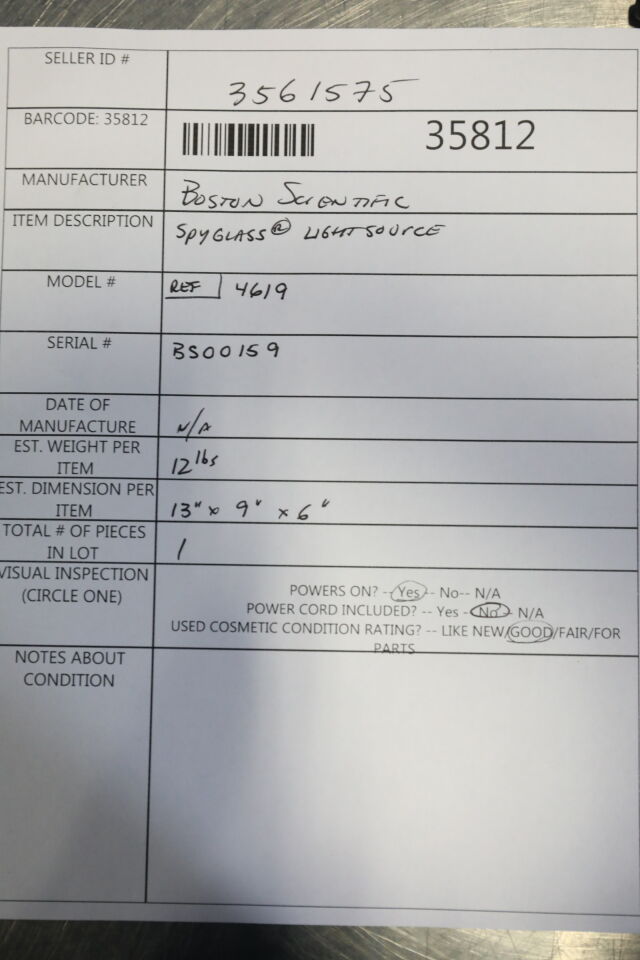 SELLER ID #
3561575
BARCODE: 35812
35812
MANUFACTURER
BOSTON SCIENTIFIC
ITEM DESCRIPTION
SPYGLASS® LIGHTSOURCE
MODEL #
REF 4619
SERIAL #
BS00159
DATE OF
MANUFACTURE
N/A
EST. WEIGHT PER
ITEM
12 lbs
EST. DIMENSION PER
ITEM
13" x 9" x 6"
TOTAL # OF PIECES
IN LOT
1
VISUAL INSPECTION
(CIRCLE ONE)
POWERS ON? --Yes-- No-- N/A
POWER CORD INCLUDED? -- Yes - No - N/A
USED COSMETIC CONDITION RATING? -- LIKE NEW/GOOD/FAIR/FOR
PARTS
NOTES ABOUT
CONDITION